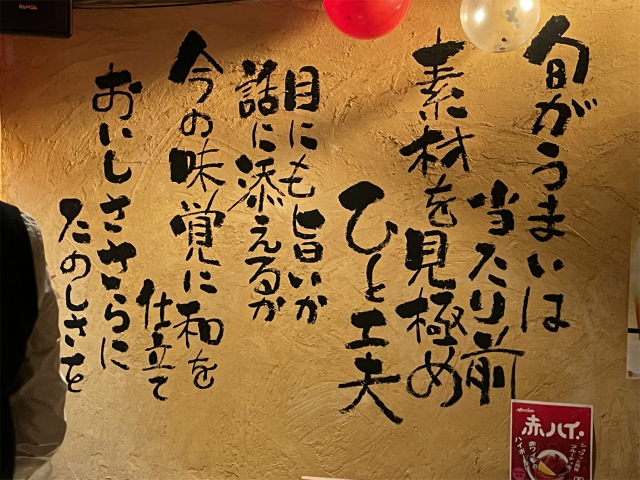 旬がうまいは
当たり前
素材を見極め
ひと工夫
目にも旨いか
話に添えるか
今の味覚に和を
仕立て
おいしささらに
たのしさを
赤ハイ